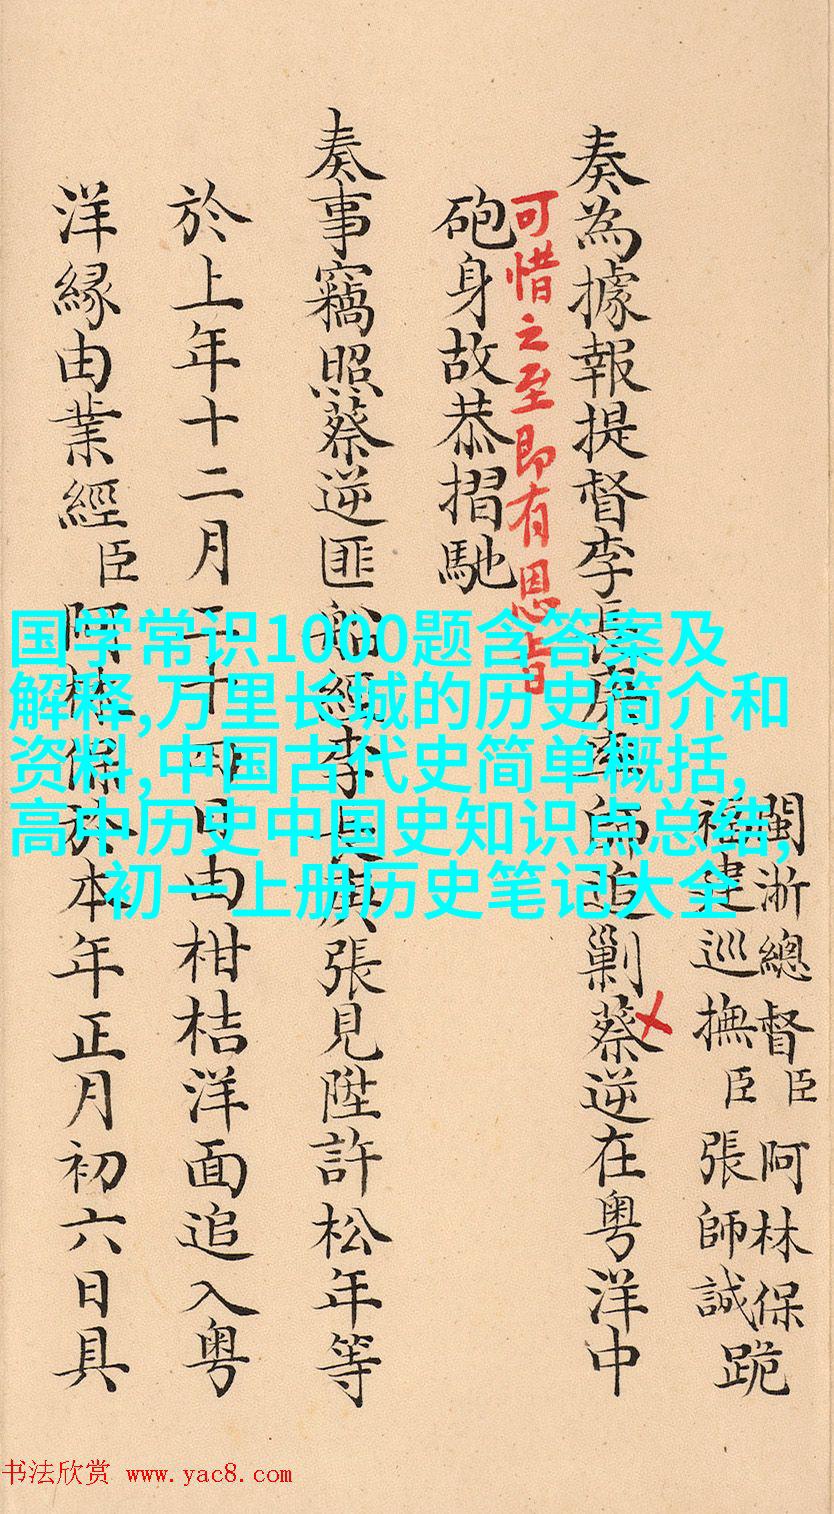 閩浙總督臣阿林保
福建巡撫臣張師誠跪
奏為據報提督李長庚率師追剿蔡逆在粵洋中
可惜之至即有恩旨
砲身故恭摺馳
奏事竊照蔡逆匪船經李長庚張見陞許松年等
於上年十二月二十四日由柑桔洋面追入粵
洋緣由業經臣阿林保於本年正月初六日具
国学常识1000题含答案及
解释,万里长城的历史简介和
资料,中国古代史简单概括,
高中历史中国史知识点总结,
初一上册历史笔记大全
书法欣赏 www.yac8.com